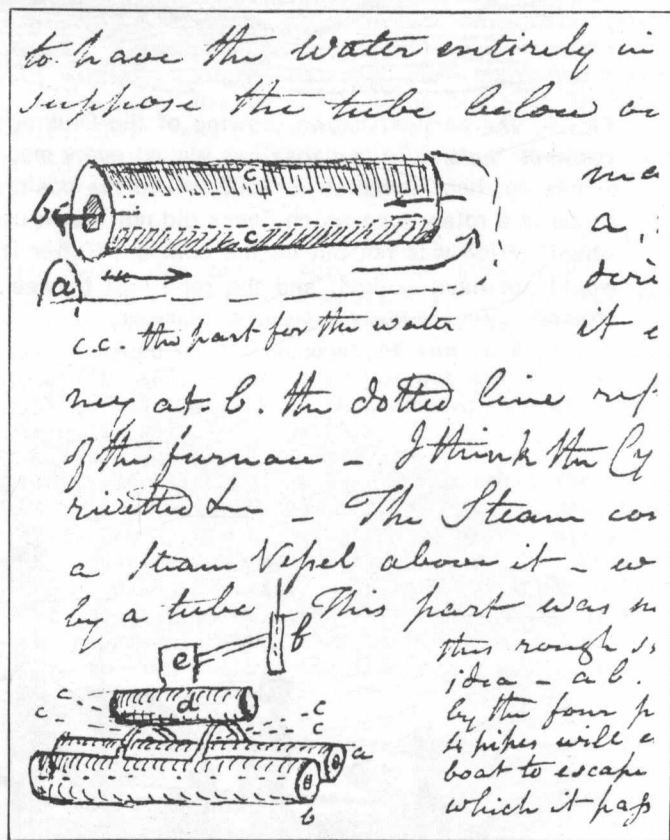 to have the Water entirely in
suppose the tube below
c
b
c
a
a,
c.c. the part for the water
it
ney at b. the dotted line rep
of the furnace – I think the Cy
rivetted &c – The Steam con
a Steam Vessel above it – w
by a tube – This part was n
b
e
d
c
c
c
c
a
b
this rough s
idea – a b.
by the four p
4 pipes will e
boat to escape
which it pass